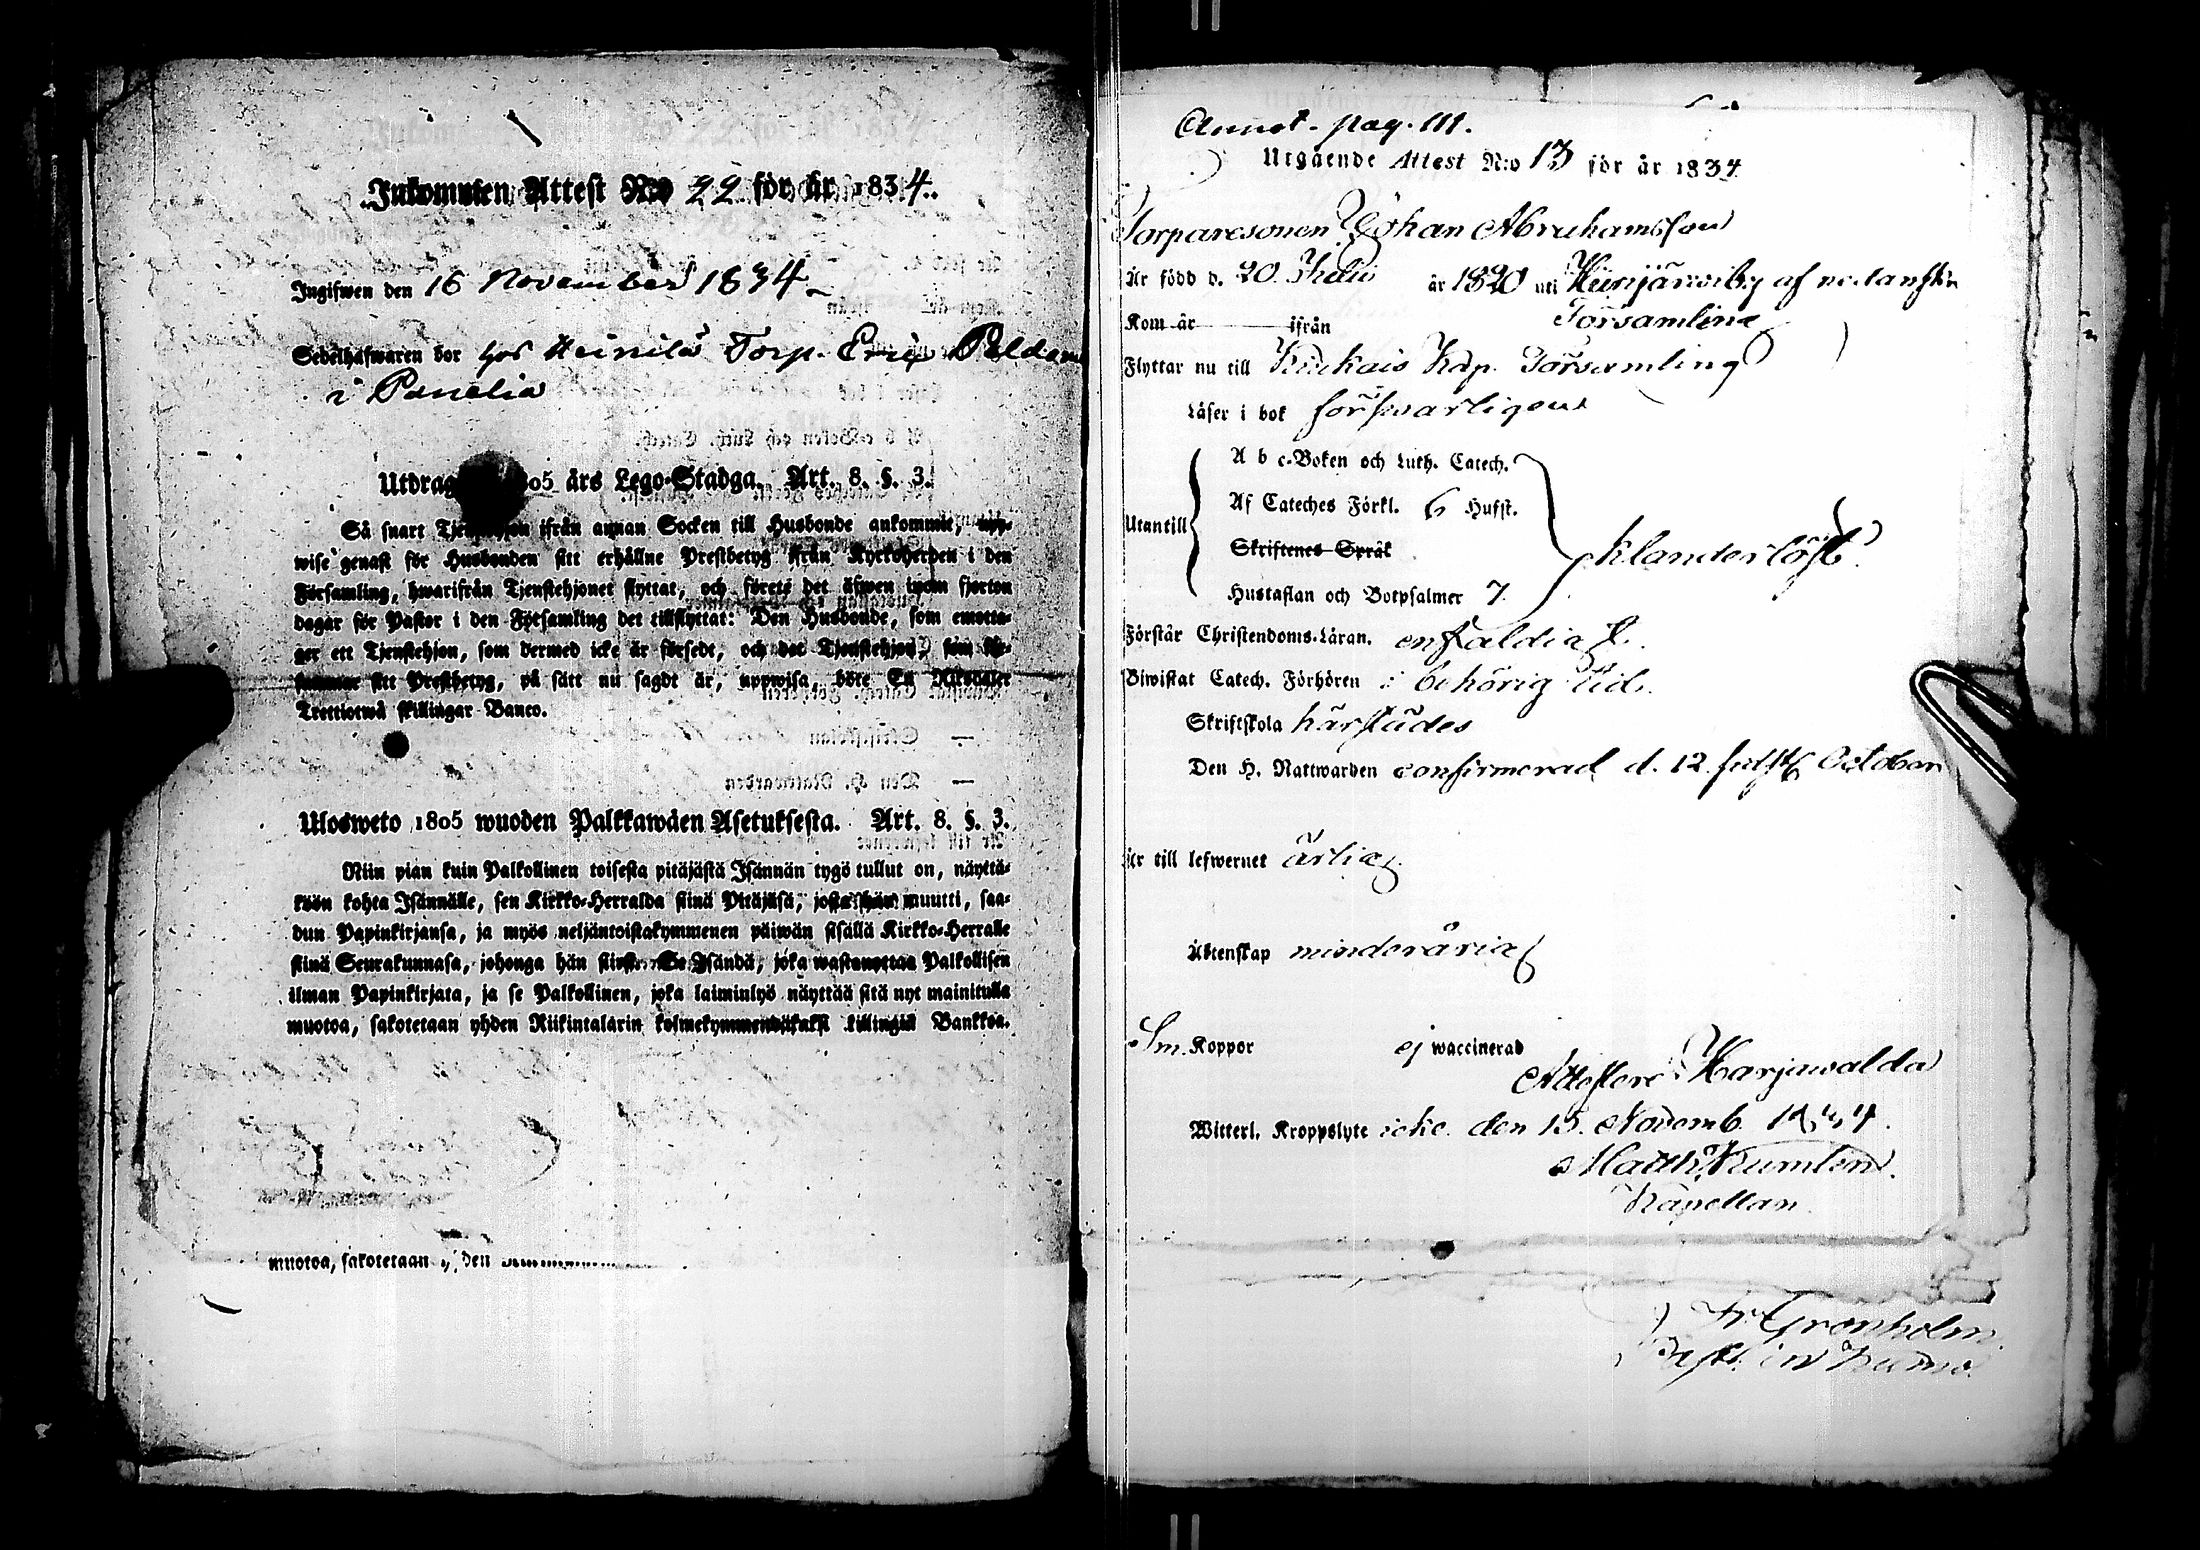 Inkommen Attest N:o 22 för år 1834.
Ingifwen den 16 November 1834
Sedelhafwaren bor hos Heinilä Torp. Eric
i Panelia
Utdrag 1805 års Lego-Stadga. Art. 8. §. 3.
Så snart Tjenstehjon ifrån annan Socken till Husbonde ankommit, upp-
wise genast för Husbonden sitt erhållne Prestbetyg ifrån Kyrkoherden i den
Församling, hwarifrån Tjenstehjonet flyttat, och förete det äfwen inom fjorton
dagar för Pastor i den Församling det tillflyttat: Den Husbonde, som emotta-
ger ett Tjenstehjon, som dermed icke är försedt, och det Tjenstehjon, som för-
summar sitt Prestbetyg, på sätt nu sagdt är, uppwisa, böte En Riksdaler
Trettiotwå skillingar Banco.
Ulosweto 1805 wuoden Palkkawäen Asetuksesta. Art. 8. §. 3.
Niin pian kuin Palkollinen toisesta pitäjästä Isännän tygö tullut on, näyttä-
köön kohta Isännälle, sen Kirkko-Herralda siinä Pitäjäsä, josta hän muutti, saa-
dun Papinkirjansa, ja myös neljäntoistakymmenen päiwän sisällä Kirkko-Herralle
siinä Seurakunnasa, johonga hän siirsi. Se Isändä, joka wastanottaa Palkollisen
ilman Papinkirjata, ja se Palkollinen, joka laiminlyö näyttää sitä nyt mainitulla
muotoa, sakotetaan yhden Riikintalarin kolmekymmendäkaksi killingiä Bankkoa.
muotoa, sakotetaan yhden
Annot. pag. 111.
Utgående Attest N:o 13 för år 1834
Torparesonen Johan Abrahamsson
Är född d. 20 Julii år 1820 uti af nedanstn
Församling
Kom år ifrån
Flyttar nu till Kiukais Kap. Församling
Läser i bok försvarligen
A b c-Boken och Luth. Catech.
Af Cateches Förkl. 6 Hufst.
Utantill
Skriftenes Språk
klanderlöst
Hustaflan och Botpsalmer 7.
Förstår Christendoms-Läran. enfaldigt.
Biwistat Catech. Förhören i behörig tid.
Skriftskola härstädes
Den H. Nattwarden confirmerad d. 12 October
Är till lefwernet ärlig
Äktenskap minderårig
Sm. Koppor ej waccinerad
Attesterar Harjawalda
Witterl. Kroppslyte icke. den 15. Novemb. 1834.
Matth. Kumlin.
Kapellan.
Fr Grönholm
Past. in Kumo.